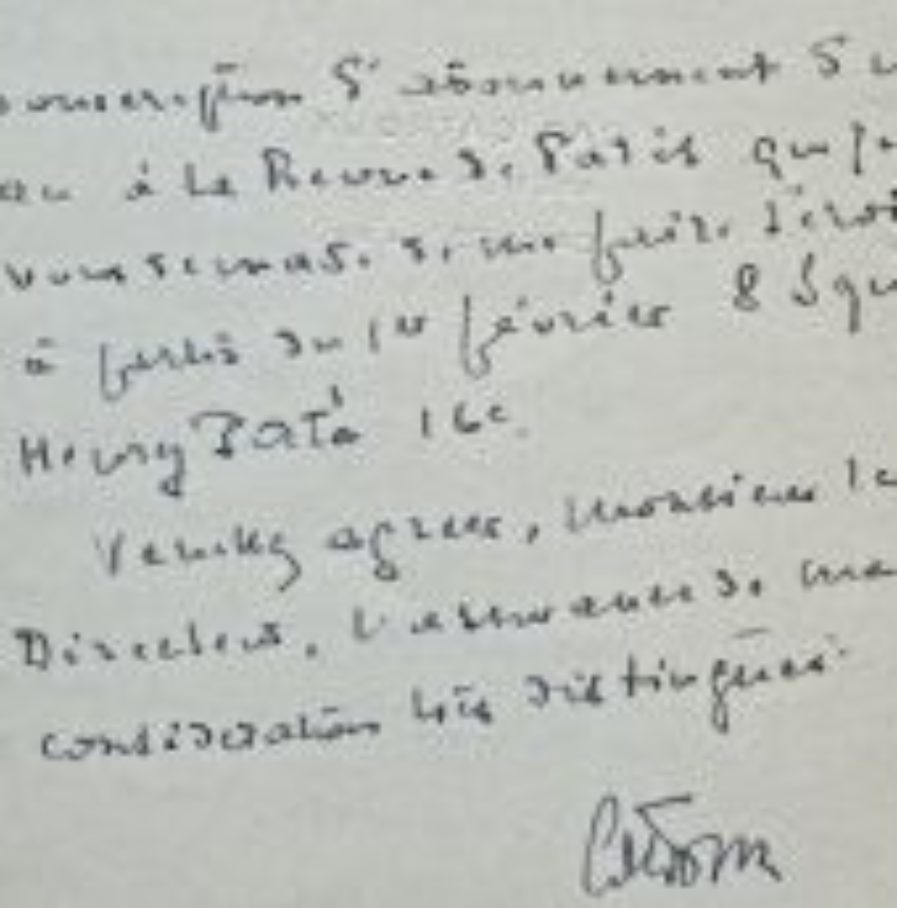 souscription d'abonnement d'u
an à la Revue de Paris que je
vous demande de me faire
à partir du 1er février 8 Squ
Henry Paté 16e
Veuillez agréer, Monsieur le
Directeur, l'assurance de ma
considération très distinguée.